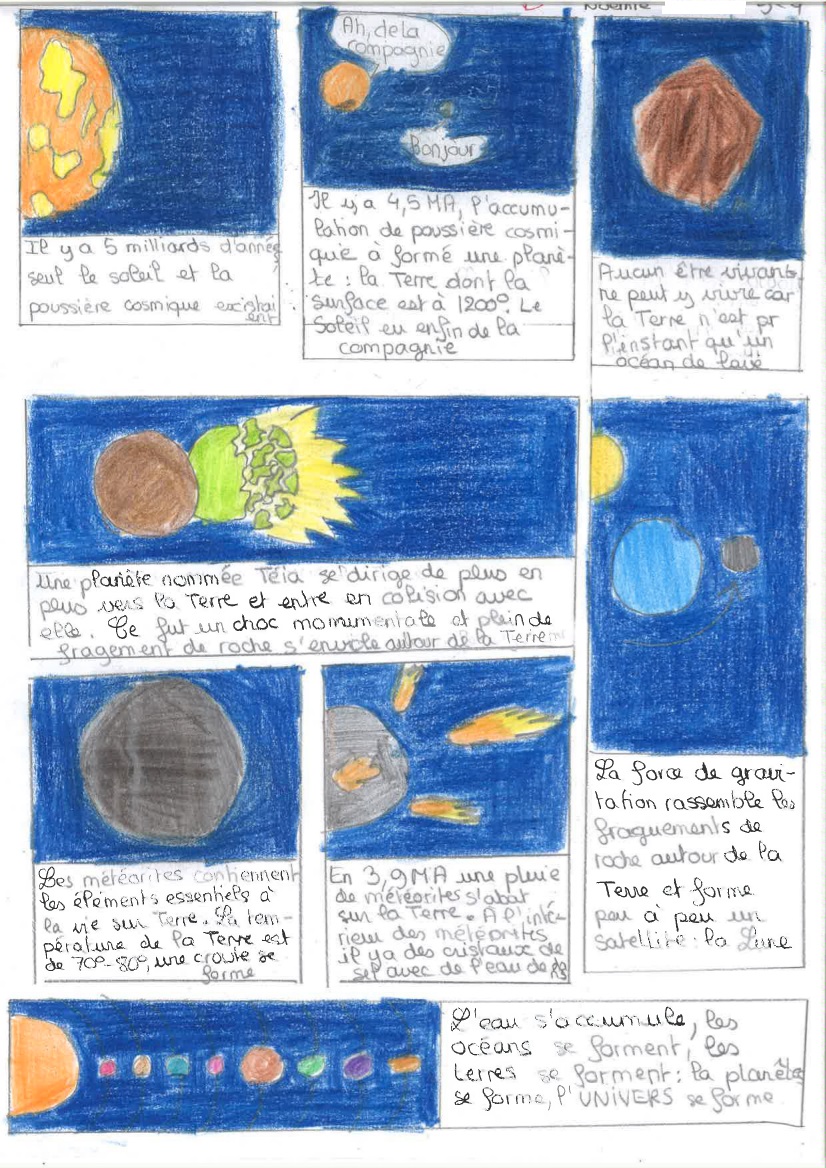 Noémie
Ah, de la
compagnie
Bonjour
Il y a 5 milliards d'année
seul le soleil et la
poussière cosmique existai
ent
Il y a 4,5 MA, l'accumu-
lation de poussière cosmi-
que à formé une planè-
te : la Terre dont la
surface est à 1200°. Le
Soleil eu enfin de la
compagnie
Aucun être vivant
ne peut y vivre car
la Terre n'est pr
l'instant qu'un
océan de lave
Une planète nommée Téia se dirige de plus en
plus vers la Terre et entre en colision avec
elle. Ce fut un choc monumentale et plein de
fragement de roche s'envole autour de la Terre
La force de gravi-
tation rassemble les
fraguements de
roche autour de la
Terre et forme
peu à peu un
satellite : la Lune
Les météorites contiennent
les éléments essentiels à
la vie sur Terre. La tem-
pérature de la Terre est
de 70°-80°, une croute se
forme
En 3,9 MA une pluie
de météorites s'abat
sur la Terre. A l'inté-
rieur des météorites
il ya des cristaux de
sel avec de l'eau de
L'eau s'accumule, les
océans se forment, les
terres se forment : la planète
se forme, l'UNIVERS se forme